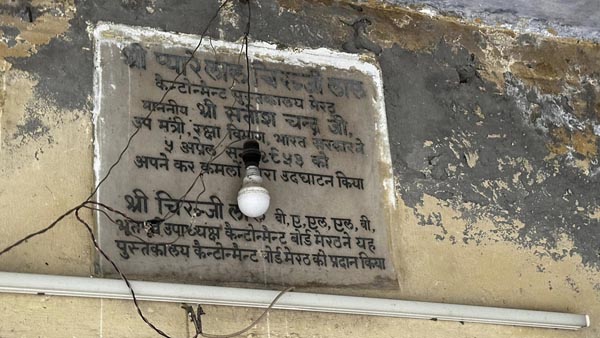 श्री प्यारेलाल चिरन्जी लाल
कैन्टोनमैन्ट पुस्तकालय मेरठ
माननीय श्री सतीश चन्द्र जी,
उप मंत्री, रक्षा विभाग, भारत सरकारने
५ अप्रैल १९५३ को
अपने कर कमलों द्वारा उदघाटन किया
श्री चिरन्जी लाल बी,ए,एल,एल,बी,
भूतपूर्व उपाध्यक्ष कैन्टोनमैन्ट बोर्ड मेरठ ने यह
पुस्तकालय कैन्टोनमैन्ट बोर्ड मेरठ की प्रदान किया